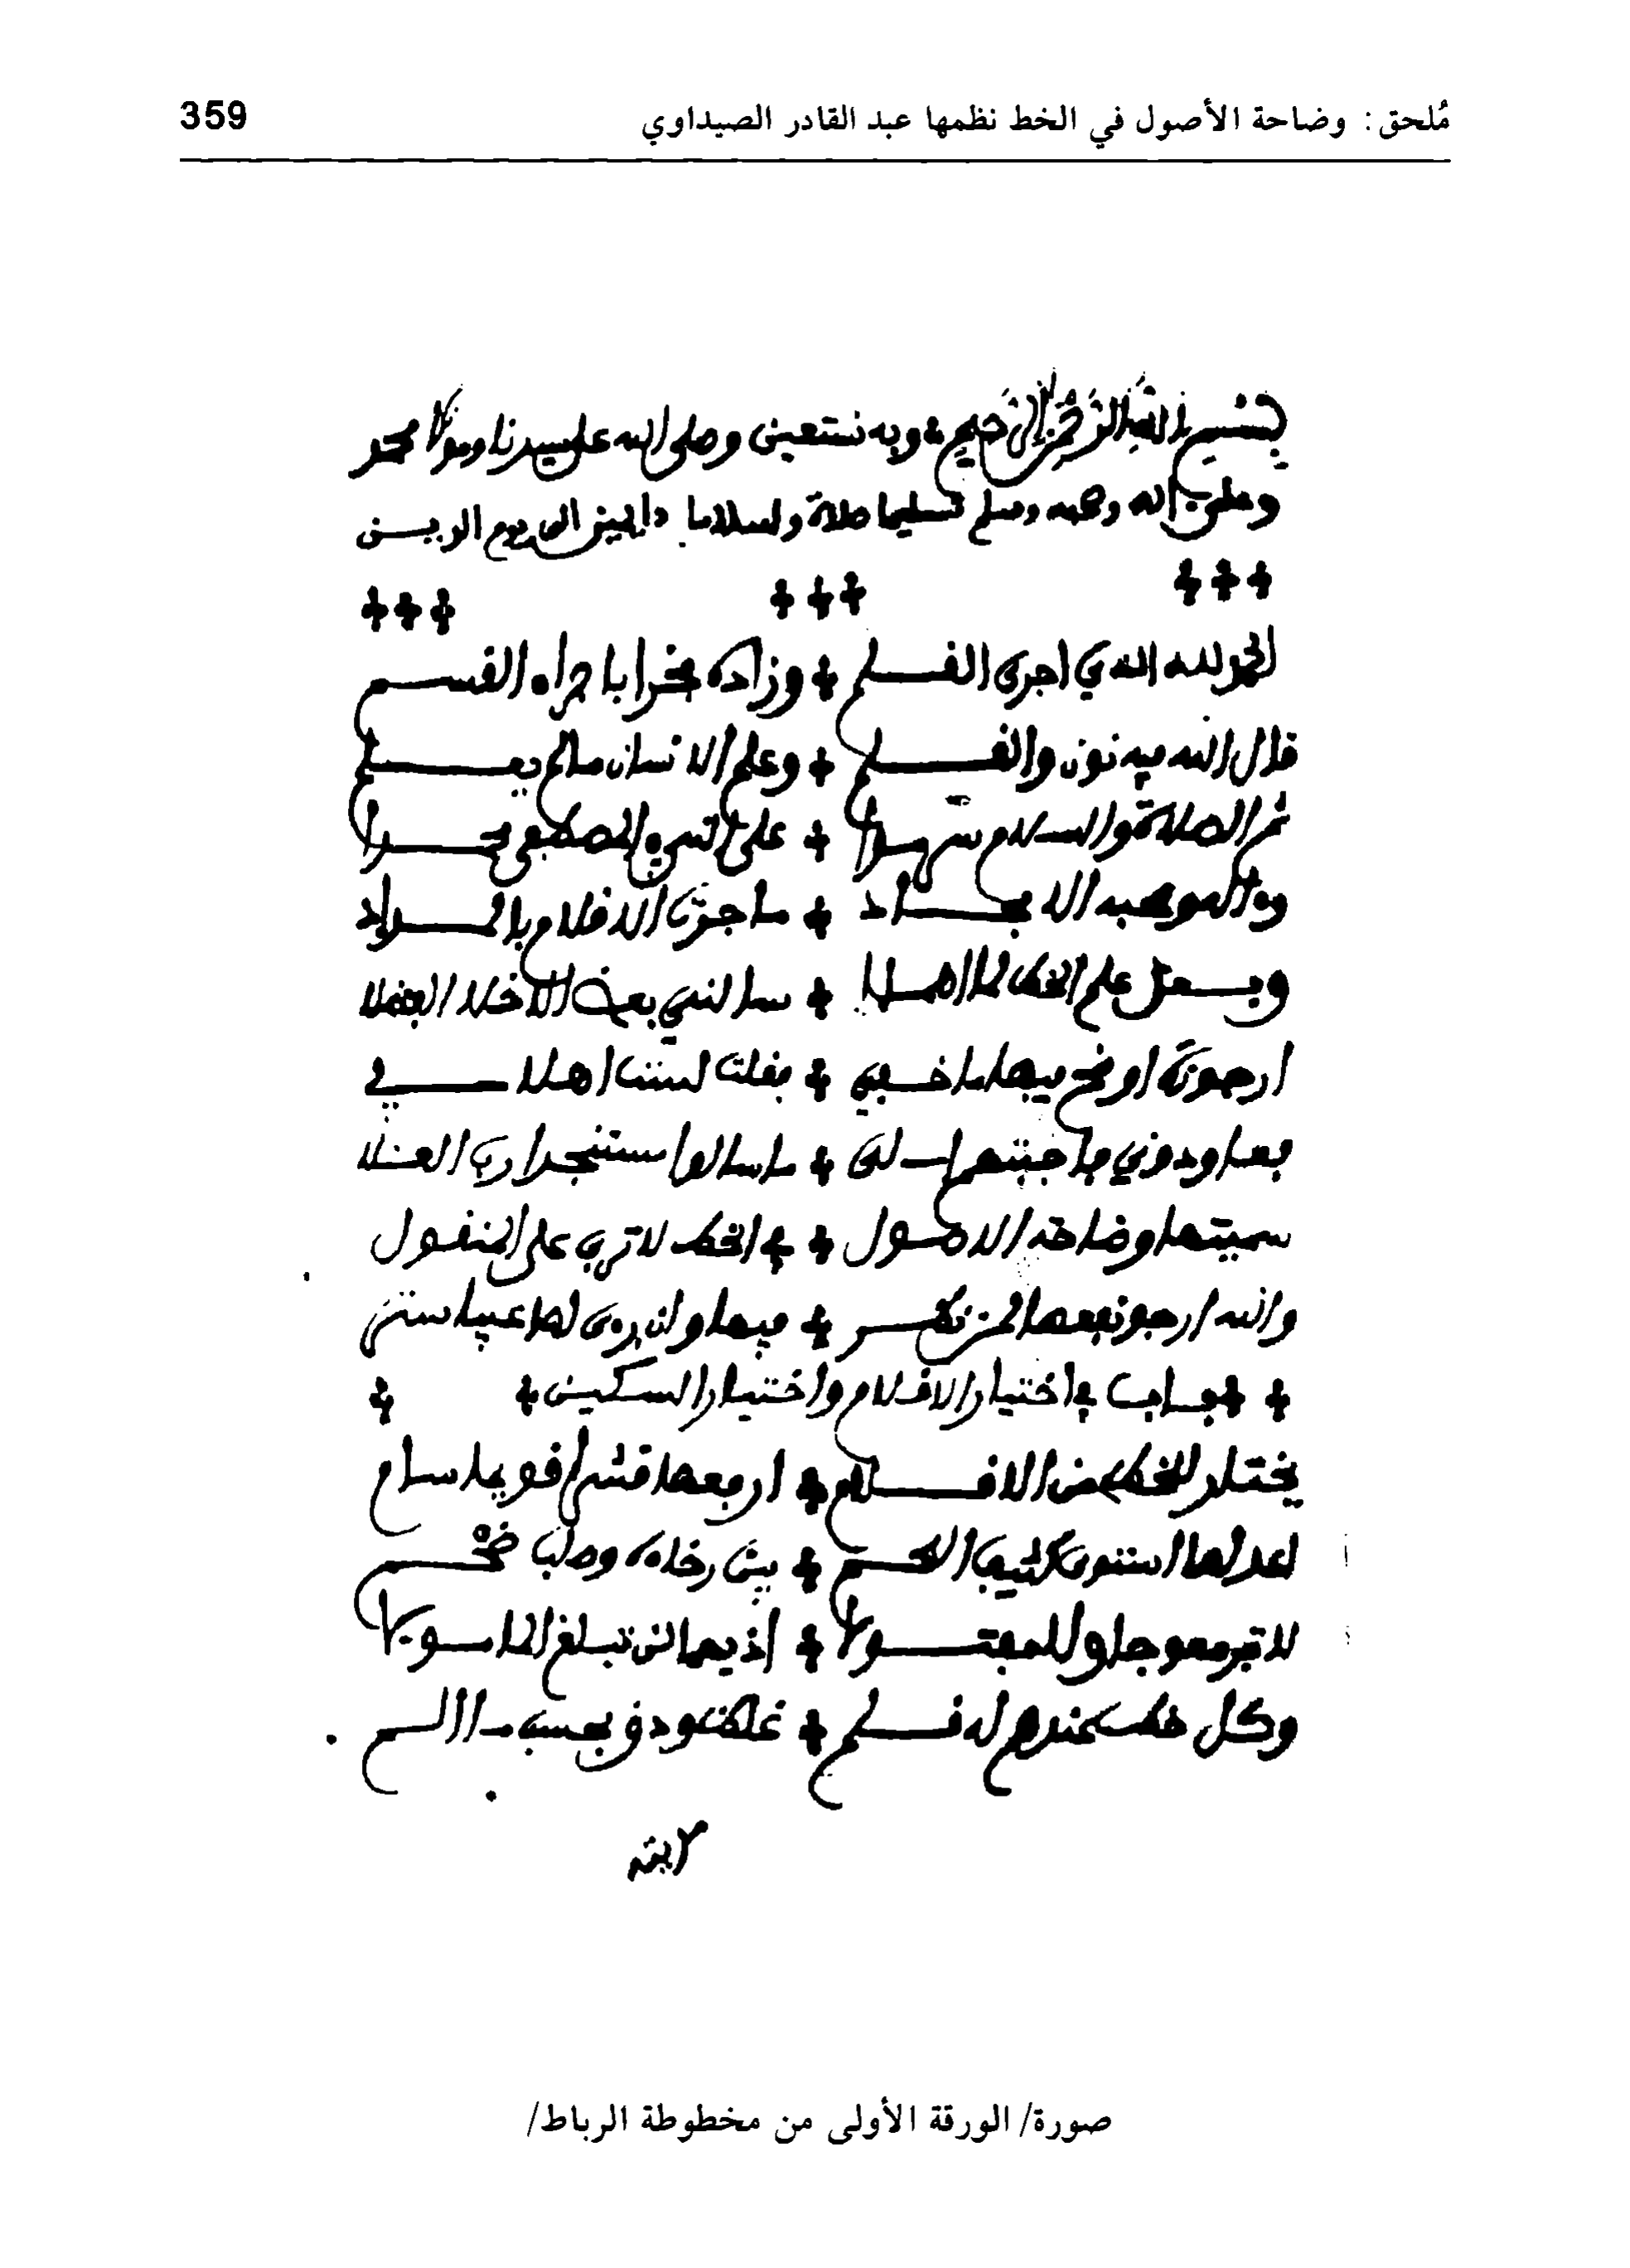 مُلحق: وضاحة الأصول في الخط نظمها عبد القادر الصيداوي 359
بسم الله الرحمن الرحيم وبه نستعين وصلى الله على سيدنا ومولانا محمد
وعلى اله وصحبه وسلم تسليما صلاة وسلاما دايمين الى يوم الدين
الحمد لله الذي اجرى القلم وزاده فخرا باجراه القسم
قال الله فيه نون والقلم وعلم الانسان ما لم يعلم
ثم الصلاة والسلام سرمدا على النبي المصطفى محمدا
واله وصحبه الامجاد ما جرت الاقلام بالمداد
وبعد علم الخط لما اهملا سالني بعض الاخلا الفضلا
ارجوزة اوضح فيها ما خفي فقلت لست اهلا في
فعاودوني فاجبتهم الى ما سالوا مستنجدا رب العلا
سميتها وضاحة الاصول في الخط لا تربى على المنقول
والله ارجو نفعها لمن نظر فيها وان يرى لها عيبا ستر
باب في اختيار الاقلام واختيار السكين
يختار للخط من الاقلام ارفعها قشرا قويما سام
اعدلها استوت كثيف اللحم بين رخاوة وصلب ضخم
وكل خط عندهم له قلم
صورة/ الورقة الأولى من مخطوطة الرباط/